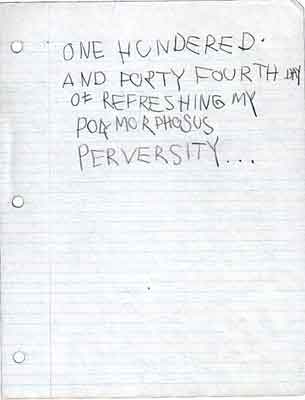 ONE HUNDERED.
AND FORTY FOURTH DAY
OF REFRESHING MY
POAMORPHOSUS
PERVERSITY...